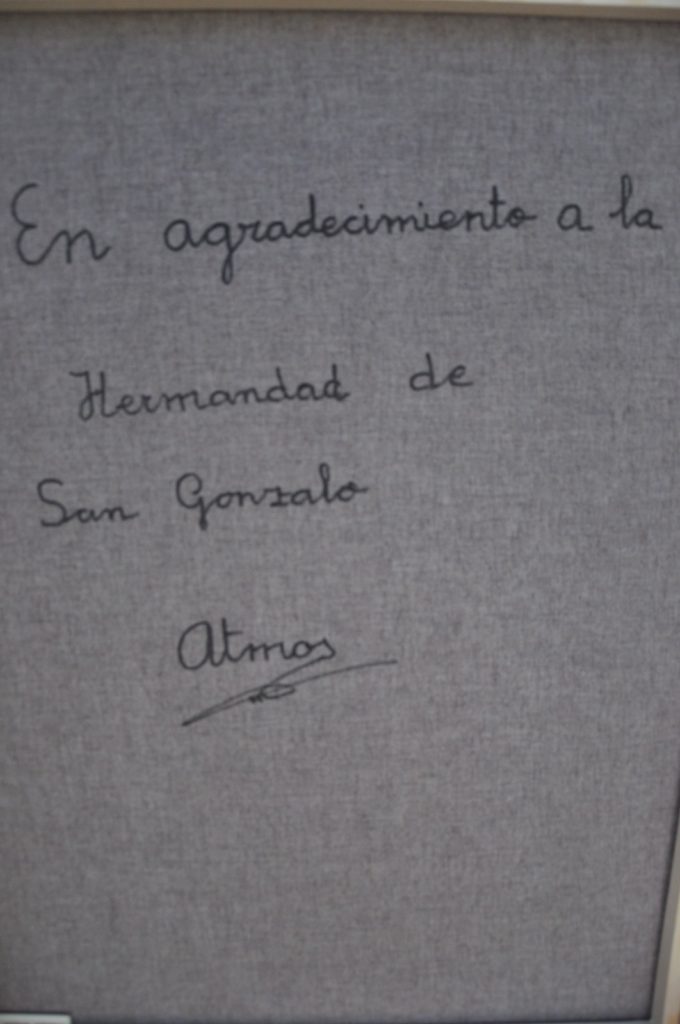 En agradecimiento a la
Hermandad de
San Gonzalo
Atmos